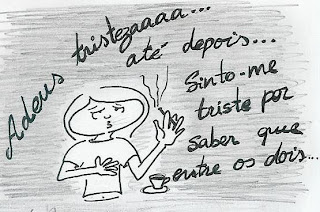 Adeus tristezaaaa...
até depois...
Sinto-me
triste por
saber que
entre os dois...